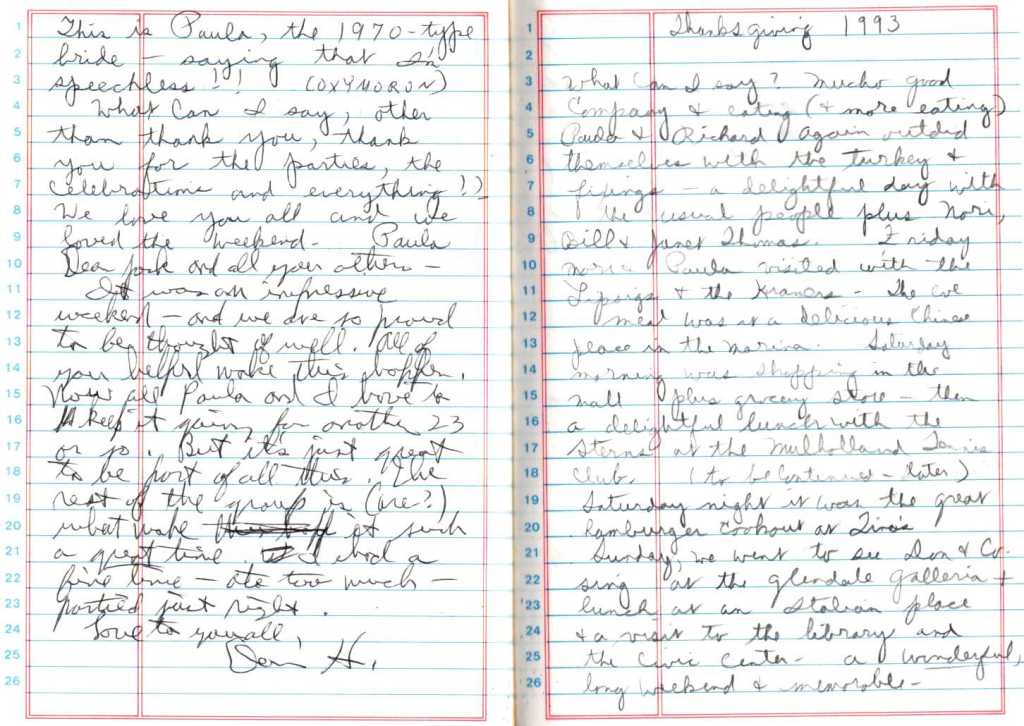 This is Paula, the 1970-type
bride - saying that I'm
speechless!! (OXYMORON)
What can I say, other
than thank you, thank
you for the parties, the
celebrations and everything!!
We love you all and we
loved the weekend- Paula
Dear Jack and all you others -
It was an impressive
weekend - and we are so proud
to be thought of well. All of
you helped make this happen.
Now all Paula and I have to
keep it going for another 23
or so. But it's just great
to be part of all this. The
rest of the group is (are?)
what make it such
a great time. I had a
fine time - ate too much -
partied just right.
Love to you all,
H.
Thanksgiving 1993
What can I say? Mucho good
Company & eating (& more eating)
Paula & Richard again outdid
themselves with the turkey &
fixings - a delightful day with
the usual people plus Nori,
Bill & Janet Thomas. Friday
Paula visited with the
Lipsigs & the Kramers - The eve
meal was at a delicious Chinese
place in the marina. Saturday
morning was shopping in the
mall plus grocery store - then
a delightful lunch with the
Sterns at the Mulholland Tennis
Club. (to be continued - later)
Saturday night it was the great
hamburger cookout at Tina's
Sunday, we went to see Don & Co.
sing at the Glendale Galleria +
lunch at an Italian place
& a visit to the library and
the Civic Center- a wonderful,
long weekend & memorable-
1
2
3
4
5
6
7
8
9
10
11
12
13
14
15
16
17
18
19
20
21
22
23
24
25
26
1
2
3
4
5
6
7
8
9
10
11
12
13
14
15
16
17
18
19
20
21
22
23
24
25
26